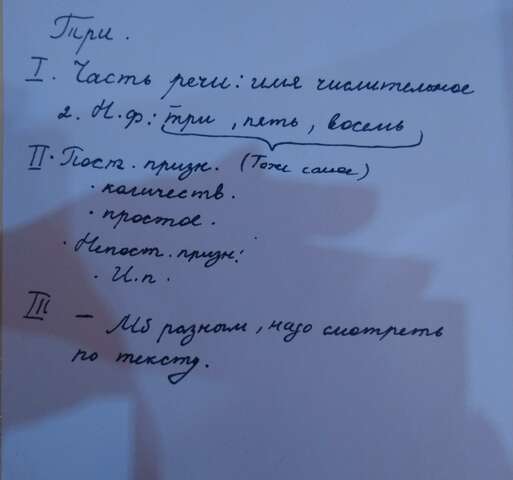 Три.
I. Часть речи: имя числительное
2. Н.ф: три, пять, восемь
II. Пост. призн. (Тоже самое)
· количеств.
· простое.
· Непост. призн:
· И.п.
III – Мб разным, надо смотреть
по тексту.